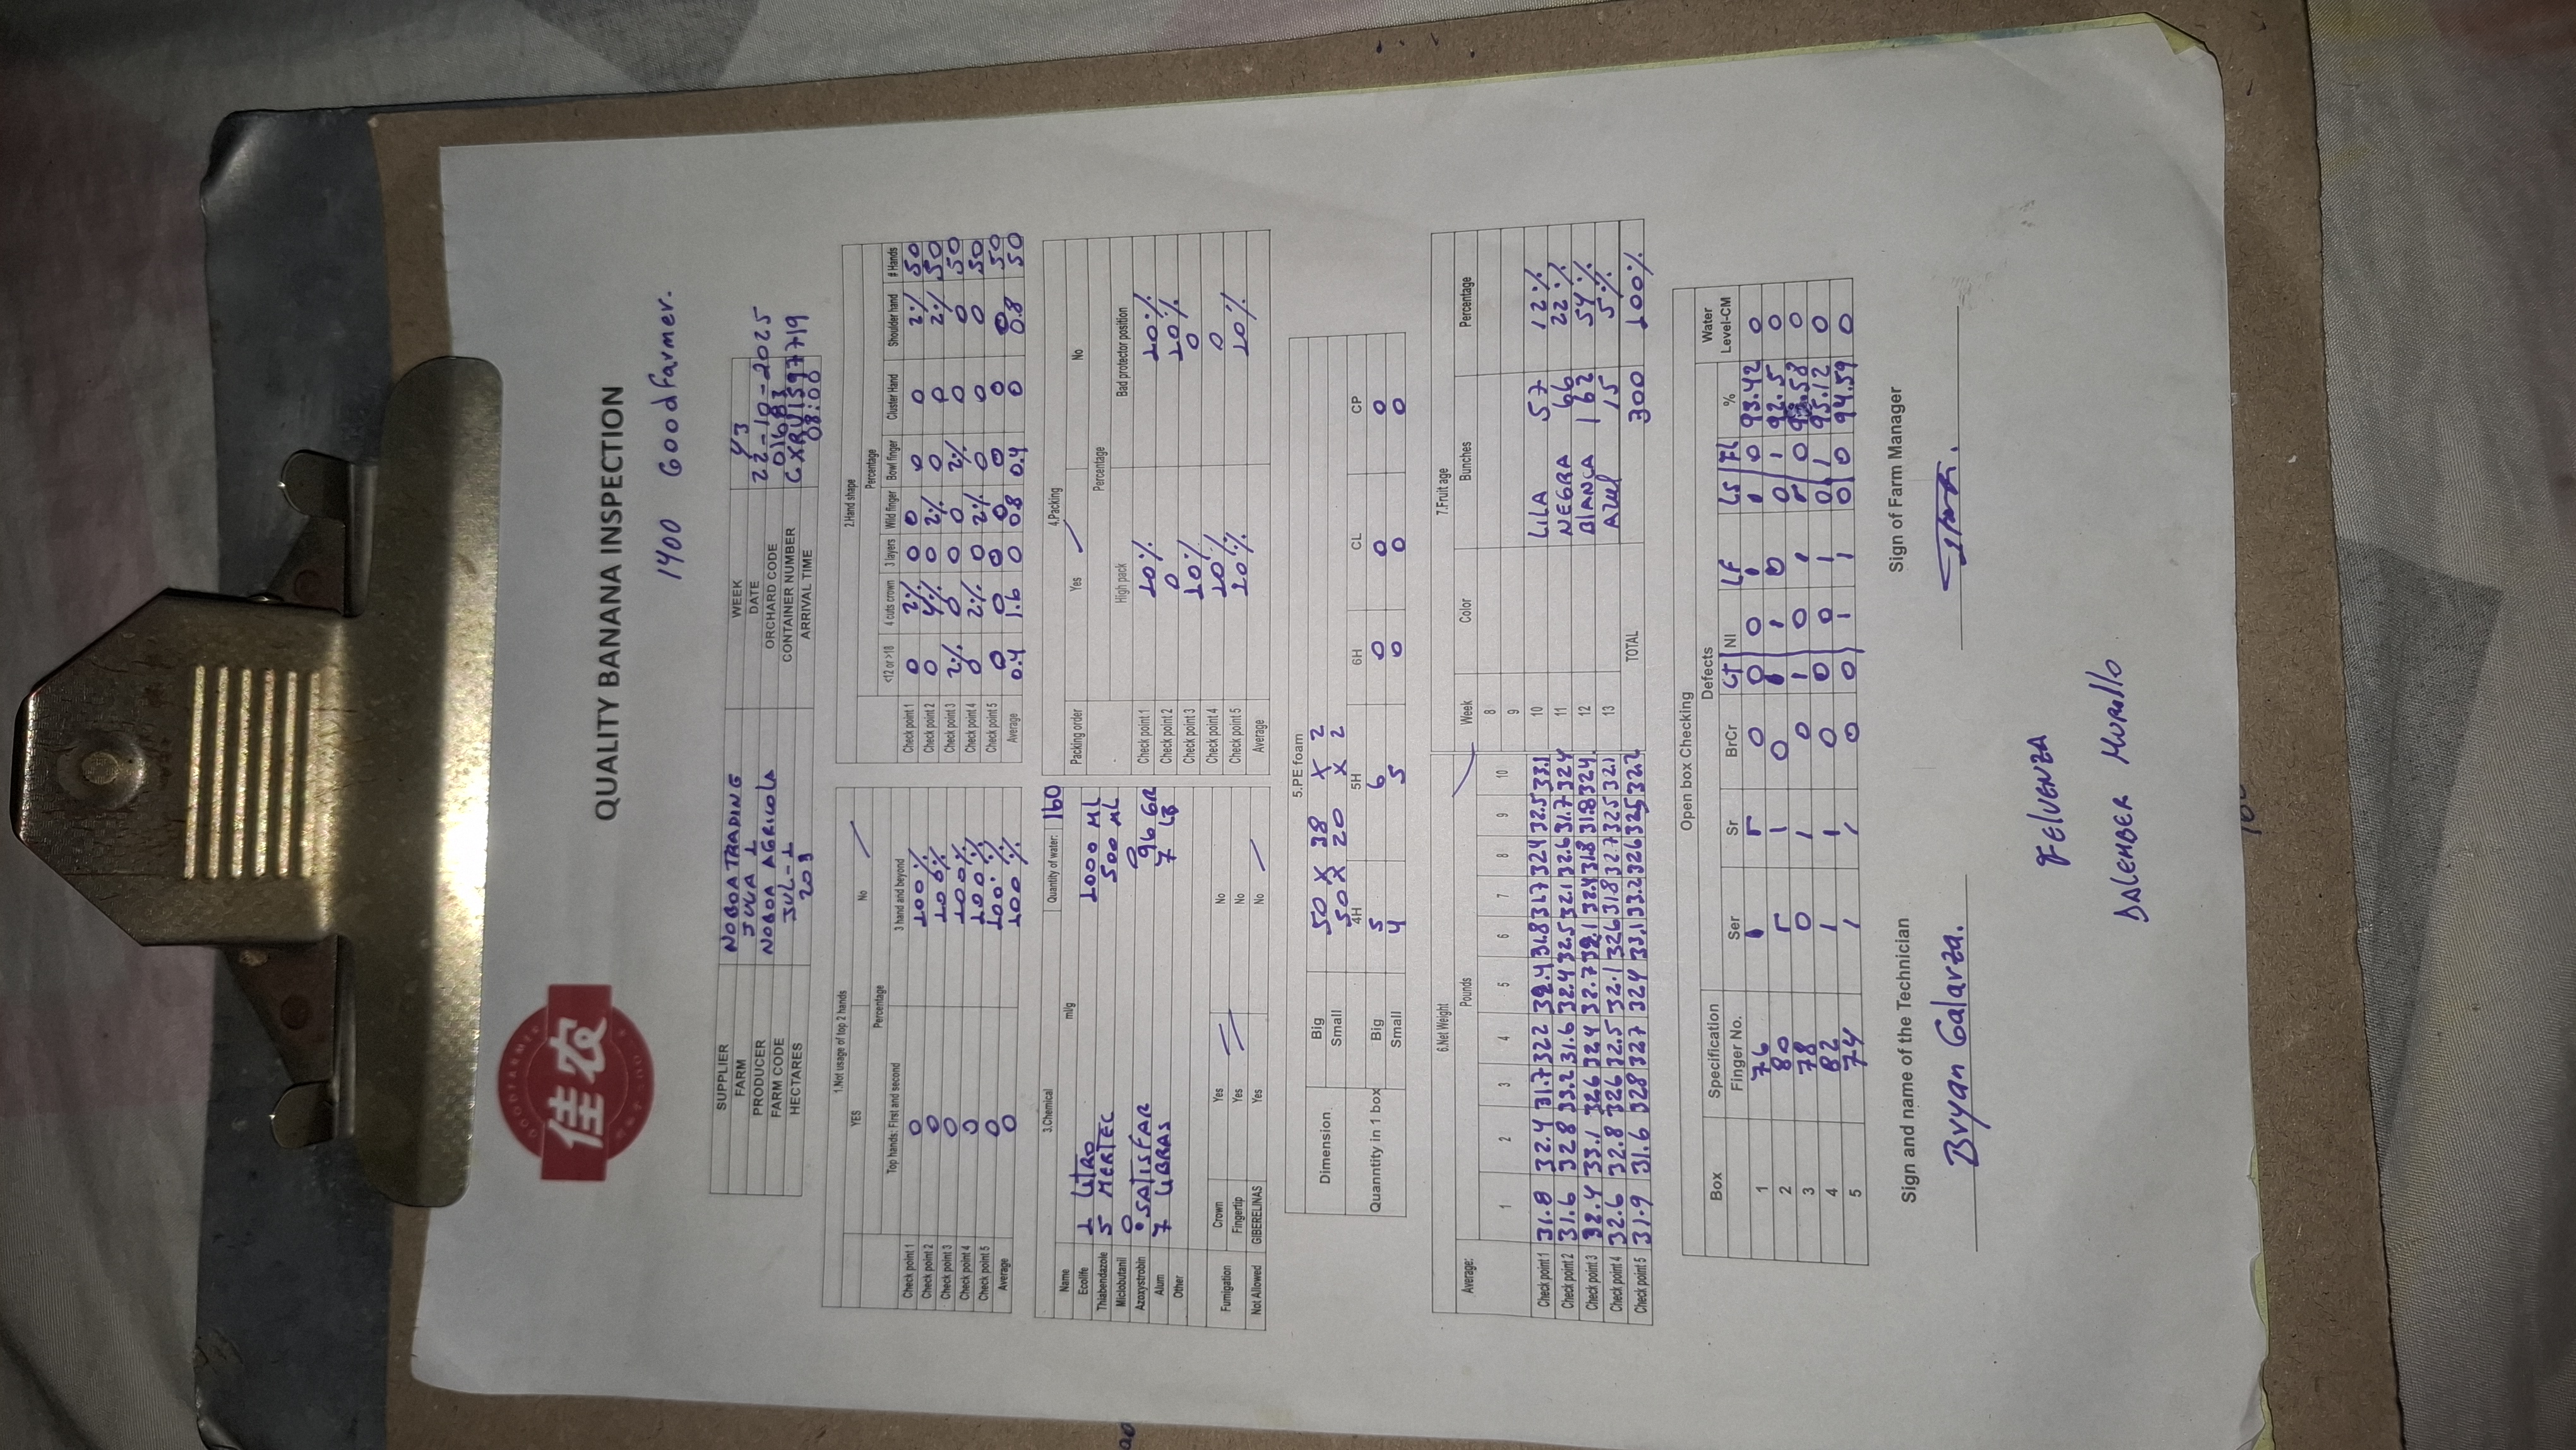 GOODFARMER
佳农
QUALITY BANANA INSPECTION
1400 Goodfarmer.
SUPPLIER NOBOA TRADING WEEK 43
FARM JULIA 1 DATE 22-10-2025
PRODUCER NOBOA AGRICOLA ORCHARD CODE 01683
FARM CODE JUL-1 CONTAINER NUMBER CXRU1597719
HECTARES 209 ARRIVAL TIME 08:00
1.Not usage of top 2 hands
YES No
Percentage
Top hands: First and second 3 hand and beyond
Check point 1 0 100%
Check point 2 0 100%
Check point 3 0 100%
Check point 4 0 100%
Check point 5 0 100%
Average 0 100%
2.Hand shape
Percentage
<12 or >18 4 cuts crown 3 layers Wild finger Bowl finger Cluster Hand Shoulder hand # Hands
Check point 1 0 2% 0 0 0 0 2% 50
Check point 2 0 4% 0 2% 0 0 2% 50
Check point 3 2% 0 0 0 2% 0 0 50
Check point 4 0 2% 0 2% 0 0 0 50
Check point 5 0 0 0 0 0 0 0 50
Average 0.4 1.6 0 0.8 0.4 0 0.8 50
3.Chemical Quantity of water: 160
Name ml/g
Ecolife 1 LITRO 1000 ML
Thiabendazole 5 MERTEC 500 ML
Miclobutanil 0 0
Azoxystrobin SATISFAR 96 GR
Alum 7 LIBRAS 7 LB
Other
Fumigation Crown Yes No
Fingertip Yes No
Not Allowed GIBERELINAS Yes No
4.Packing
Packing order Yes No
Percentage
High pack Bad protector position
Check point 1 10% 10%
Check point 2 0 10%
Check point 3 10% 0
Check point 4 10% 0
Check point 5 10% 10%
Average
5.PE foam
Dimension Big 50 x 38 x 2
Small 50 x 20 x 2
4H 5H 6H CL CP
Quanntity in 1 box Big 5 6 0 0 0
Small 4 5 0 0 0
6.Net Weight
Average: Pounds
1 2 3 4 5 6 7 8 9 10
Check point 1 31.8 32.4 31.7 322 32.4 31.8 31.7 324 32.5 33.1
Check point 2 31.6 328 33.2 31.6 32.4 32.5 32.1 32.6 31.7 324
Check point 3 32.4 33.1 326 324 32.7 32.1 32.4 31.8 31.8 324
Check point 4 32.6 32.8 326 32.5 32.1 326 31.8 32.7 325 32.1
Check point 5 31.9 31.6 328 327 324 33.1 33.2 326 325 32.2
7.Fruit age
Week Color Bunches Percentage
8
9
10 LILA 57 12%
11 NEGRA 66 22%
12 BlANCA 162 54%
13 Azul 15 5%
TOTAL 300 100%
Open box Checking
Box Specification Defects Water
Finger No. Ser Sr BrCr CT NI LF LS FL % Level-CM
1 76 1 0 0 0 1 1 0 93.42 0
2 80 1 0 1 1 0 0 1 92.5 0
3 78 0 1 0 1 0 1 0 .58 0
4 82 1 1 0 0 0 1 0 1 95.12 0
5 74 1 1 0 0 1 1 0 0 94.59 0
Sign and name of the Technician Sign of Farm Manager
Bryan Galarza.
FElVENZA
DALEMBER MURillo